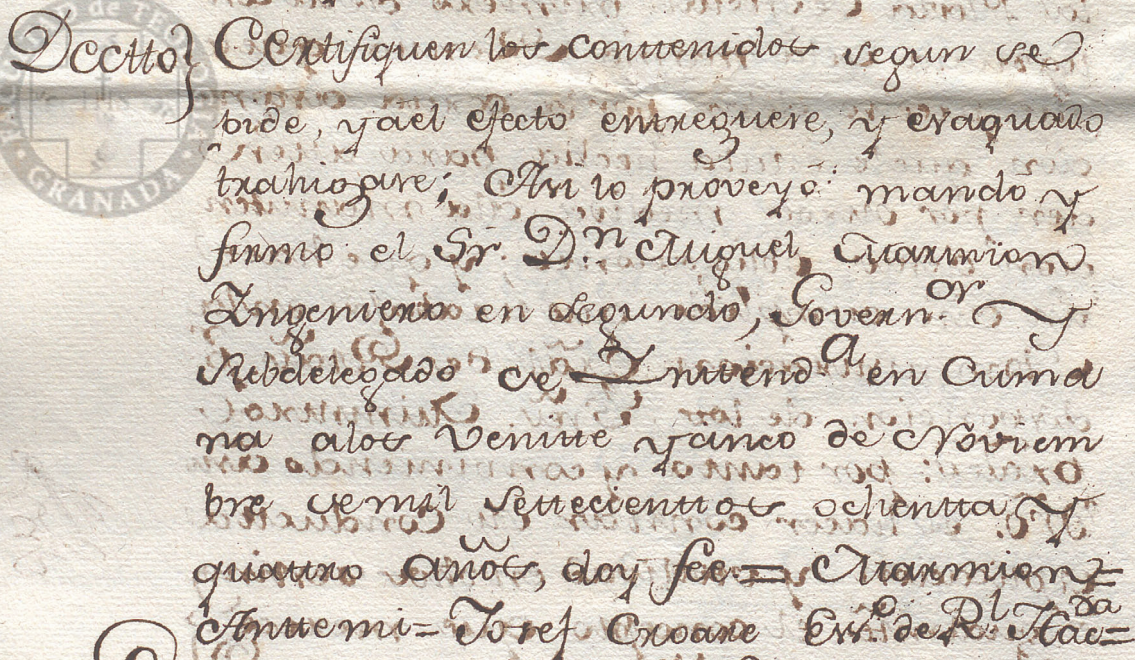 Decctto} CERtifiquen los conttenidos segun se
pide, y a el efecto entreguese, y evaquado
trahigase; Assi lo proveyó: mandó y
firmó el Sr. Dn Miguel Marmion
Ingeniero en Segundo, Governor. Y
Subdelegado de Inttenda en Cuma
na a los Veintte y cinco de Noviem
bre de mil Settecienttos ochentta y
quattro años, doy fee = Marmion =
Anttemi = Josef
de Rl Hacda =
GRANADA